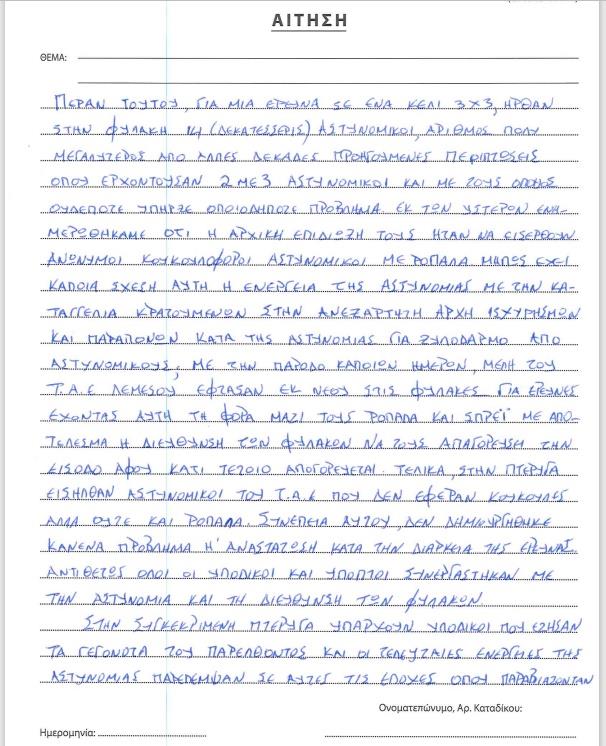 ΑΙΤΗΣΗ
ΘΕΜΑ:
ΠΕΡΑΝ ΤΟΥΤΟΥ, ΓΙΑ ΜΙΑ ΕΡΕΥΝΑ ΣΕ ΕΝΑ ΚΕΛΙ 3Χ3, ΗΡΘΑΝ
ΣΤΗΝ ΦΥΛΑΚΗ 14 (ΔΕΚΑΤΕΣΣΕΡΙΣ) ΑΣΤΥΝΟΜΙΚΟΙ, ΑΡΙΘΜΟΣ ΠΟΛΥ
ΜΕΓΑΛΥΤΕΡΟΣ ΑΠΟ ΑΛΛΕΣ ΔΕΚΑΔΕΣ ΠΡΟΗΓΟΥΜΕΝΕΣ ΠΕΡΙΠΤΩΣΕΙΣ
ΟΠΟΥ ΕΡΧΟΝΤΟΥΣΑΝ 2 ΜΕ 3 ΑΣΤΥΝΟΜΙΚΟΙ ΚΑΙ ΜΕ ΤΟΥΣ ΟΠΟΙΟΥΣ
ΟΥΔΕΠΟΤΕ ΥΠΗΡΞΕ ΟΠΟΙΟΔΗΠΟΤΕ ΠΡΟΒΛΗΜΑ. ΕΚ ΤΩΝ ΥΣΤΕΡΩΝ ΕΝΗ-
ΜΕΡΩΘΗΚΑΜΕ ΟΤΙ Η ΑΡΧΙΚΗ ΕΠΙΔΙΩΞΗ ΤΟΥΣ ΗΤΑΝ ΝΑ ΕΙΣΕΡΘΟΥΝ
ΑΝΩΝΥΜΟΙ ΚΟΥΚΟΥΛΟΦΟΡΟΙ ΑΣΤΥΝΟΜΙΚΟΙ ΜΕ ΡΟΠΑΛΑ ΜΗΠΩΣ ΕΧΕΙ
ΚΑΠΟΙΑ ΣΧΕΣΗ ΑΥΤΗ Η ΕΝΕΡΓΕΙΑ ΤΗΣ ΑΣΤΥΝΟΜΙΑΣ ΜΕ ΤΗΝ ΚΑ-
ΤΑΓΓΕΛΙΑ ΚΡΑΤΟΥΜΕΝΩΝ ΣΤΗΝ ΑΝΕΞΑΡΤΗΤΗ ΑΡΧΗ ΙΣΧΥΡΗΣΜΩΝ
ΚΑΙ ΠΑΡΑΠΟΝΩΝ ΚΑΤΑ ΤΗΣ ΑΣΤΥΝΟΜΙΑΣ ΓΙΑ ΞΥΛΟΔΑΡΜΟ ΑΠΟ
ΑΣΤΥΝΟΜΙΚΟΥΣ; ΜΕ ΤΗΝ ΠΑΡΟΔΟ ΚΑΠΟΙΩΝ ΗΜΕΡΩΝ, ΜΕΛΗ ΤΟΥ
Τ.Α.Ε ΛΕΜΕΣΟΥ ΕΦΤΑΣΑΝ ΕΚ ΝΕΟΥ ΣΤΙΣ ΦΥΛΑΚΕΣ ΓΙΑ ΕΡΕΥΝΕΣ
ΕΧΟΝΤΑΣ ΑΥΤΗ ΤΗ ΦΟΡΑ ΜΑΖΙ ΤΟΥΣ ΡΟΠΑΛΑ ΚΑΙ ΣΠΡΕΪ ΜΕ ΑΠΟ-
ΤΕΛΕΣΜΑ Η ΔΙΕΥΘΥΝΣΗ ΤΩΝ ΦΥΛΑΚΩΝ ΝΑ ΤΟΥΣ ΑΠΑΓΟΡΕΥΣΗ ΤΗΝ
ΕΙΣΟΔΟ ΑΦΟΥ ΚΑΤΙ ΤΕΤΟΙΟ ΑΠΟΓΟΡΕΥΕΤΑΙ. ΤΕΛΙΚΑ, ΣΤΗΝ ΠΤΕΡΥΓΑ
ΕΙΣΗΛΘΑΝ ΑΣΤΥΝΟΜΙΚΟΙ ΤΟΥ Τ.Α.Ε ΠΟΥ ΔΕΝ ΕΦΕΡΑΝ ΚΟΥΚΟΥΛΕΣ
ΑΛΛΑ ΟΥΤΕ ΚΑΙ ΡΟΠΑΛΑ. ΣΥΝΕΠΕΙΑ ΑΥΤΟΥ, ΔΕΝ ΔΗΜΙΟΥΡΓΗΘΗΚΕ
ΚΑΝΕΝΑ ΠΡΟΒΛΗΜΑ Η' ΑΝΑΣΤΑΤΩΣΗ ΚΑΤΑ ΤΗΝ ΔΙΑΡΚΕΙΑ ΤΗΣ ΕΡΕΥΝΑΣ.
ΑΝΤΙΘΕΤΩΣ ΟΛΟΙ ΟΙ ΥΠΟΔΙΚΟΙ ΚΑΙ ΥΠΟΠΤΟΙ ΣΥΝΕΡΓΑΣΤΗΚΑΝ ΜΕ
ΤΗΝ ΑΣΤΥΝΟΜΙΑ ΚΑΙ ΤΗ ΔΙΕΥΘΥΝΣΗ ΤΩΝ ΦΥΛΑΚΩΝ.
ΣΤΗΝ ΣΥΓΚΕΚΡΙΜΕΝΗ ΠΤΕΡΥΓΑ ΥΠΑΡΧΟΥΝ ΥΠΟΔΙΚΟΙ ΠΟΥ ΕΖΗΣΑΝ
ΤΑ ΓΕΓΟΝΟΤΑ ΤΟΥ ΠΑΡΕΛΘΟΝΤΟΣ ΚΑΙ ΟΙ ΤΕΛΕΥΤΑΙΕΣ ΕΝΕΡΓΕΙΕΣ ΤΗΣ
ΑΣΤΥΝΟΜΙΑΣ ΠΑΡΕΠΕΜΨΑΝ ΣΕ ΑΥΤΕΣ ΤΙΣ ΕΠΟΧΕΣ ΟΠΟΥ ΠΑΡΑΒΙΑΖΟΝΤΑΝ
Ονοματεπώνυμο, Αρ. Καταδίκου:
Ημερομηνία: